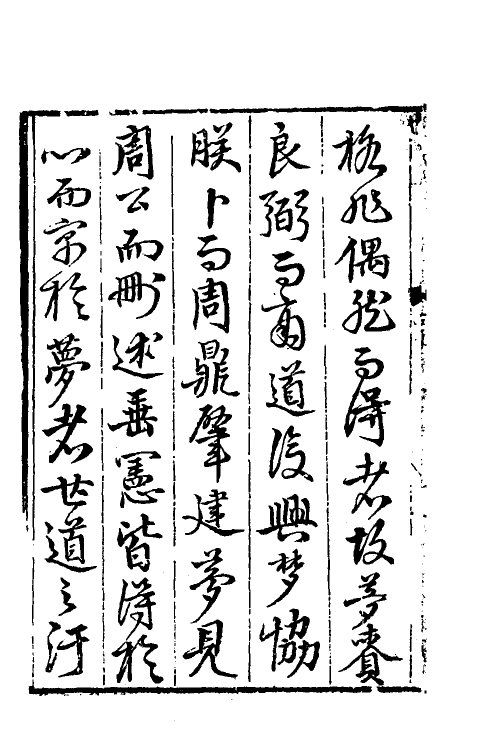 格非偶然而得者故夢賚
良弼而商道復興梦協
朕卜而周鼎肇建夢見
周公而刪述垂憲皆得於
心而宗於夢者世道之汙